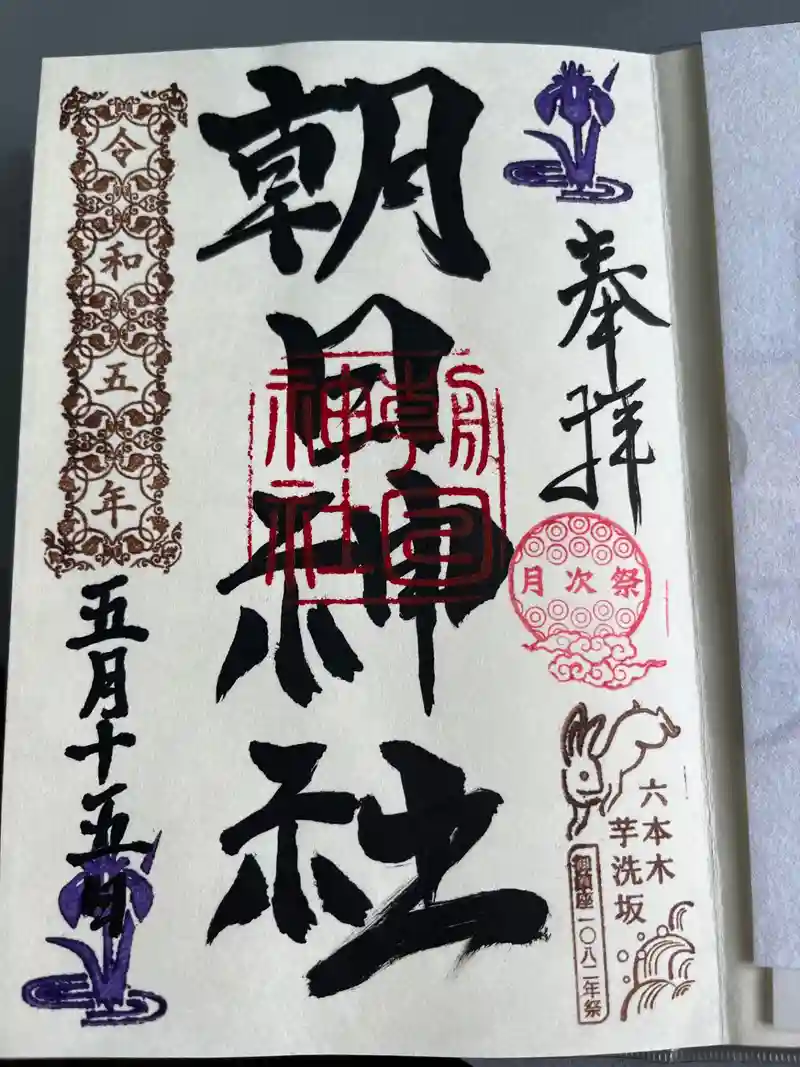 奉拝
月次祭
六本木
芋洗坂
御鎮座一〇八二年祭
朝日神社
朝日
神社
令和五年
五月十五日